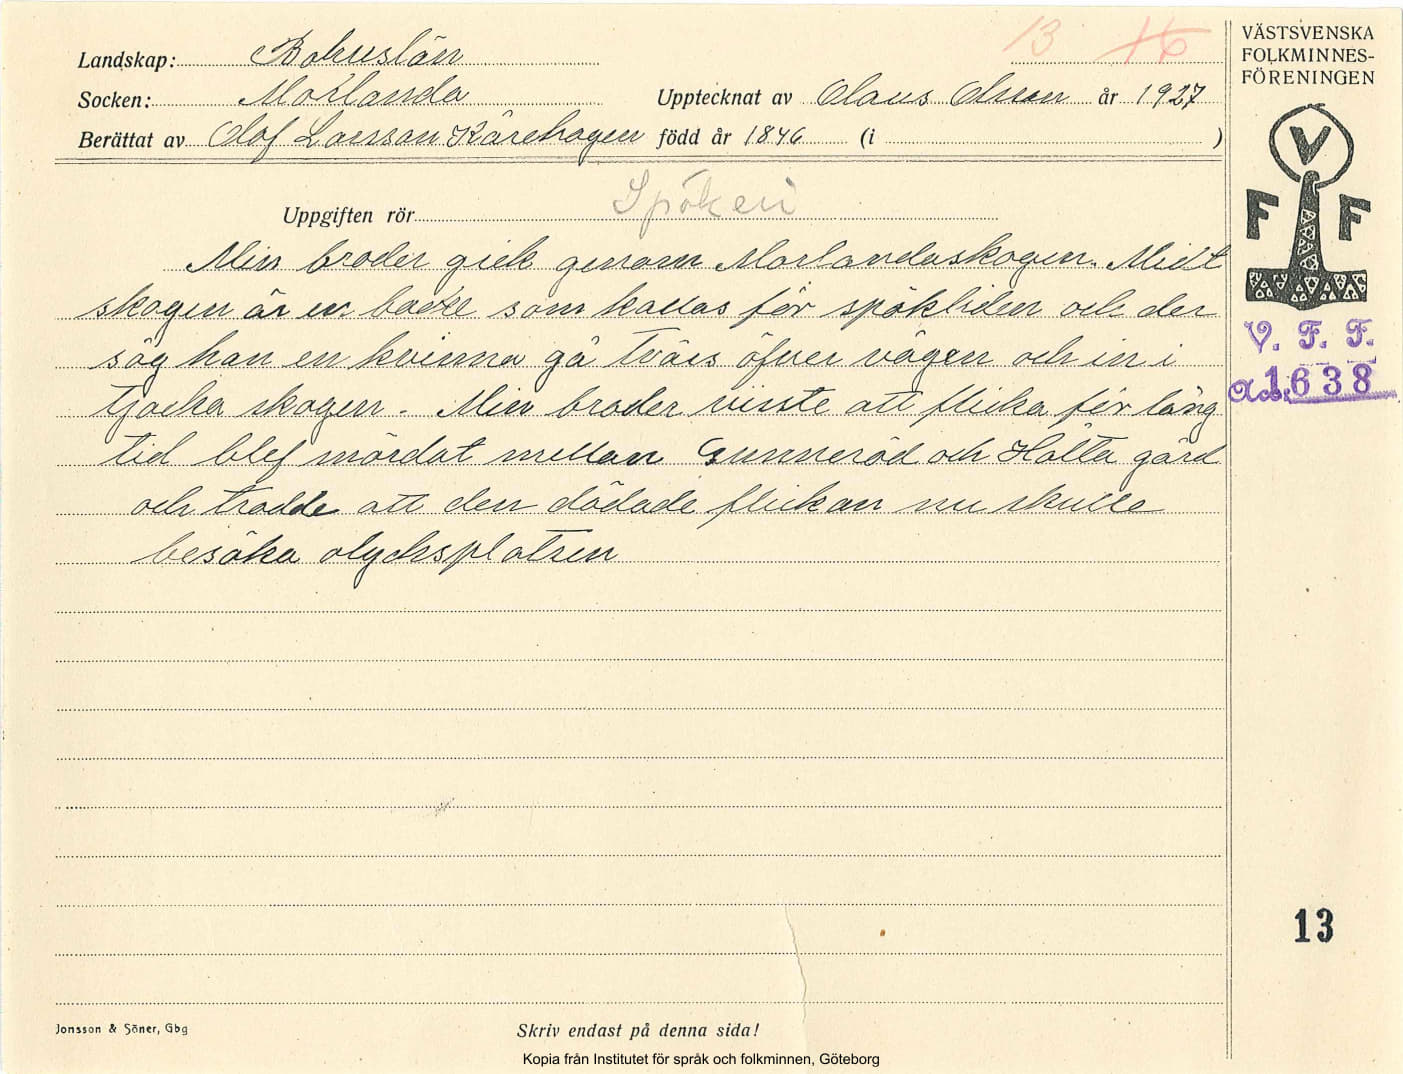 13 16
Landskap: Bohuslän
Socken: Morlanda
Upptecknat av Claus Olsson år 1927
Berättat av Olof Larsson Kårehogen född år 1846 (i )
Uppgiften rör Spökeri
Min broder gick genom Morlandaskogen. Midt
skogen är en backe som kallas för spökliden och der
såg han en kvinna gå tvärs öfver vägen och in i
tjocka skogen. Min broder visste att flicka för lång
tid blef mördat mellan Gunneröd och Hälta gård
och trodde att den dödade flickan nu skulle
besöka olycksplatsen
VÄSTSVENSKA
FOLKMINNES-
FÖRENINGEN
V
F F
V. F. F.
Acc: 1638
13
Jonsson & Söner, Gbg
Skriv endast på denna sida!
Kopia från Institutet för språk och folkminnen, Göteborg